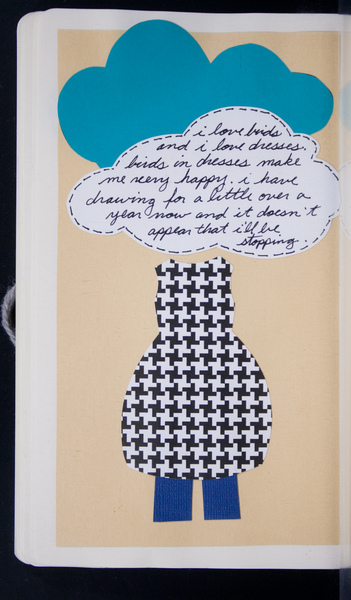 i love birds
and i love dresses.
birds in dresses make
me very happy. i have
drawing for a little over a
year now and it doesn't
appear that i'll be
stopping.